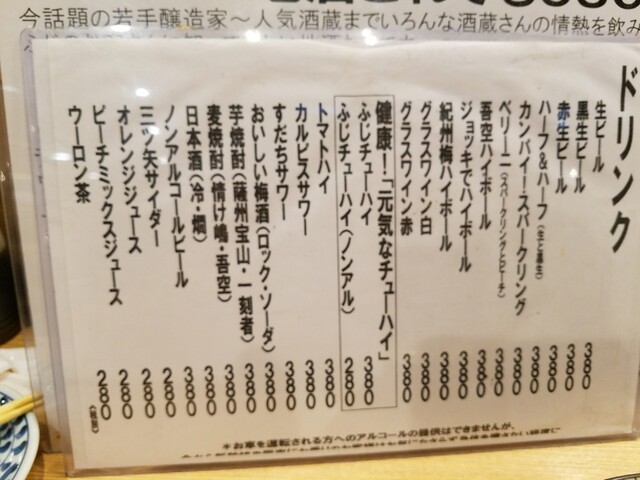 今話題の若手醸造家〜人気酒蔵までいろんな酒蔵さんの情熱を飲み
ドリンク
生ビール 380
黒生ビール 380
赤生ビール 380
ハーフ&ハーフ(生と黒生) 380
カンパイ!スパークリング 380
ベリーニ(スパークリングとピーチ) 380
吾空ハイボール 380
ジョッキでハイボール 380
紀州梅ハイボール 380
グラスワイン白 380
グラスワイン赤 380
健康!「元気なチューハイ」
ふじチューハイ 380
ふじチューハイ(ノンアル) 280
トマトハイ 380
カルピスサワー 380
すだちサワー 380
おいしい梅酒(ロック・ソーダ) 380
芋焼酎(薩州宝山・一刻者) 380
麦焼酎(情け嶋・吾空) 380
日本酒(冷・燗) 380
ノンアルコールビール 280
三ツ矢サイダー 280
オレンジジュース 280
ピーチミックスジュース
ウーロン茶 280
(税別)
*お車を運転される方へのアルコールの提供はできませんが、